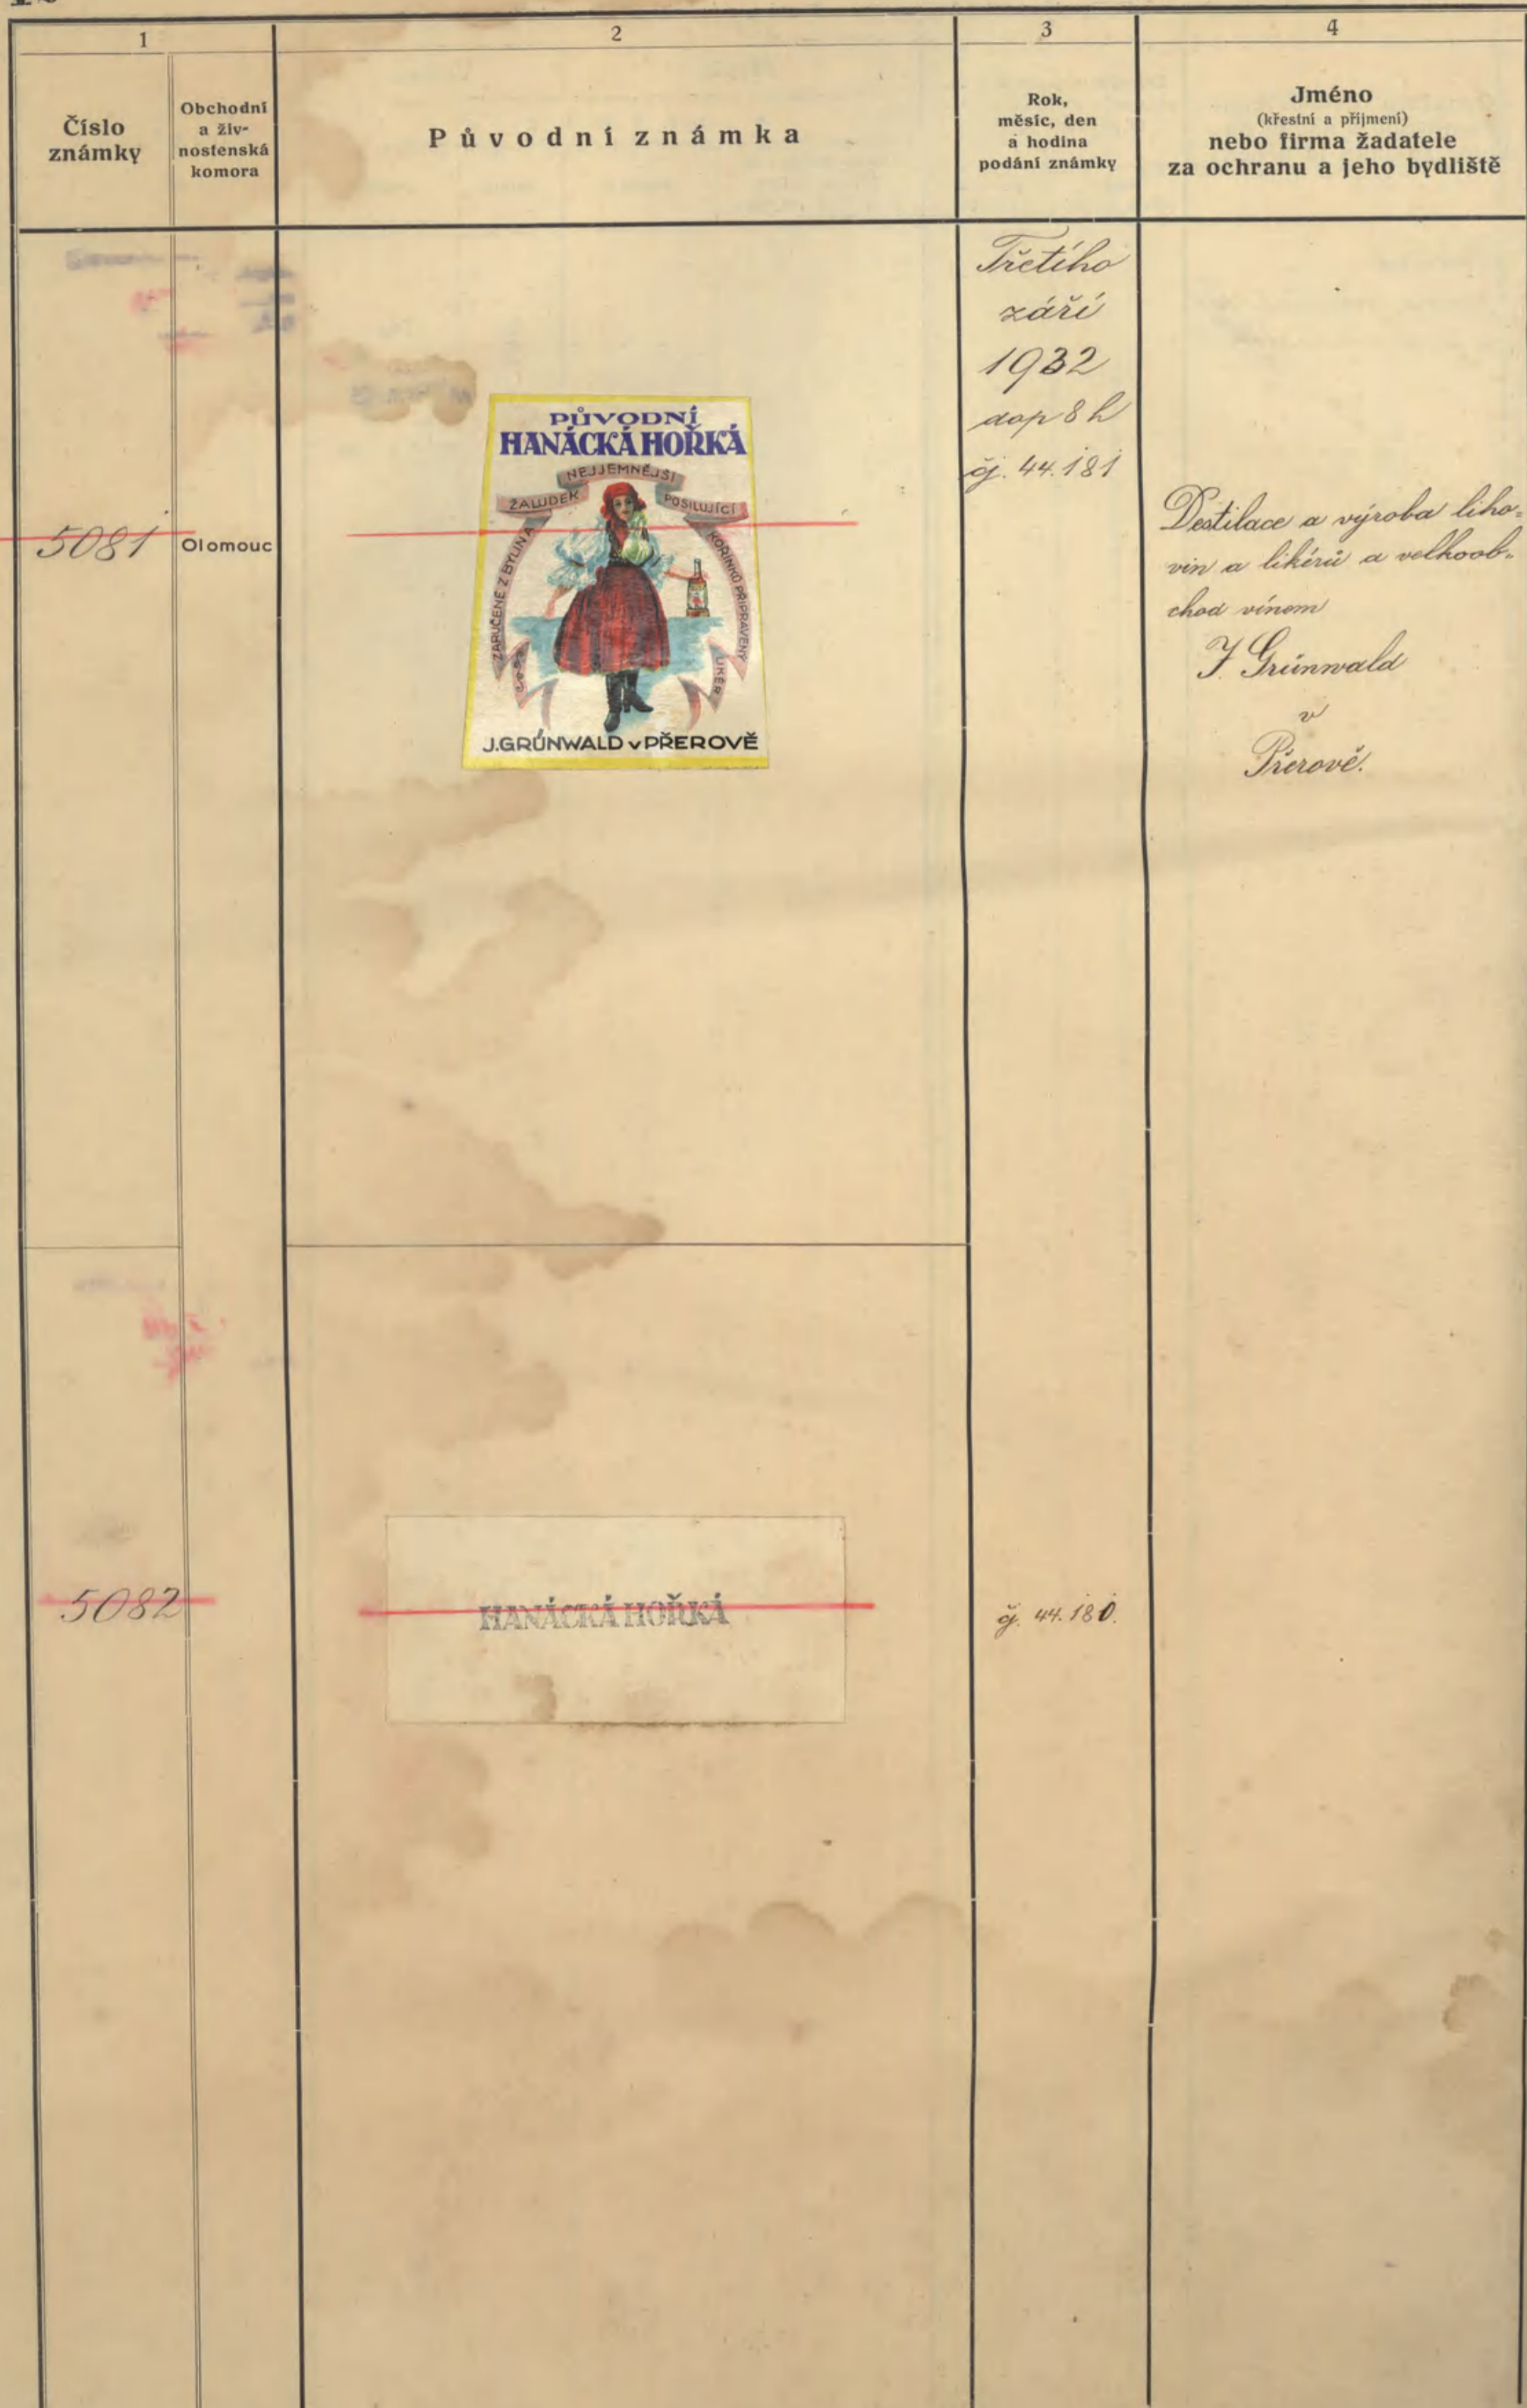 1
2
3
4
Číslo
známky
Obchodní
a živ-
nostenská
komora
Původní známka
Rok,
měsíc, den
a hodina
podání známky
Jméno
(křestní a příjmení)
nebo firma žadatele
za ochranu a jeho bydliště
Třetího
září
1932
dop 8 h
čj. 44.181
5081
Olomouc
PŮVODNÍ
HANÁCKÁ HOŘKÁ
NEJJEMNĚJŠÍ
ŽALUDEK
POSILUJÍCÍ
ZARUČENĚ Z BYLIN A
KOŘÍNKŮ PŘIPRAVENÝ
LIKÉR
J. GRÜNWALD v PŘEROVĚ
Destilace a výroba liho-
vin a likérů a velkoob-
chod vínem
J. Grünwald
v
Přerově.
5082
HANÁCKÁ HOŘKÁ
čj. 44.180.